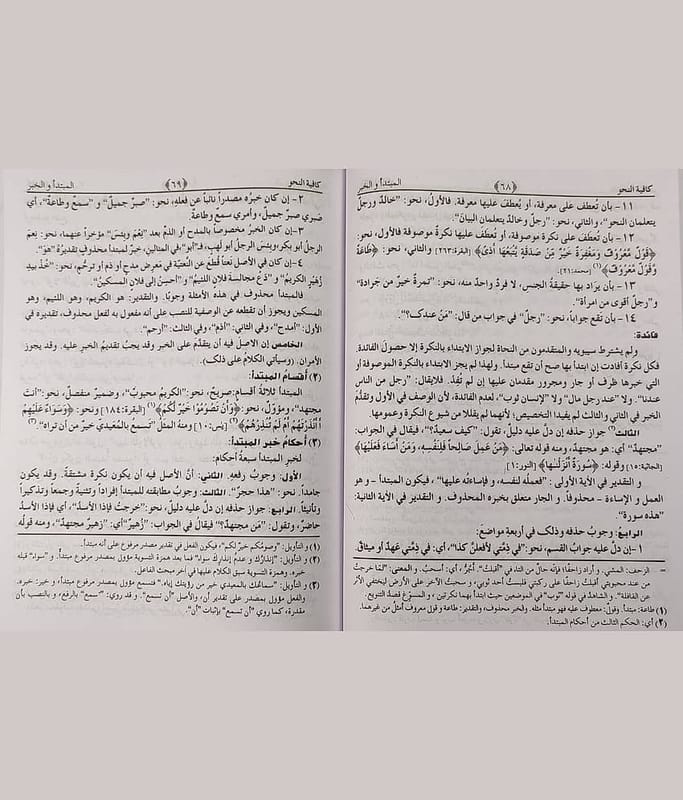 كافية النحو ﴿٦٨﴾ المبتدأ والخبر
١١- بأن تُعطف على معرفة، أو يُعطف عليها معرفة. فالأولُ، نحو: "خالدٌ ورجلٌ
يتعلمان النحو"، والثاني، نحو: "رجلٌ وخالدٌ يتعلمان البيانَ".
١٢- بأن تُعطَف على نكرة موصوفة، أو تُعطَف عليها نكرة موصوفة فالأول، نحو:
﴿قَوْلٌ مَعْرُوفٌ وَمَغْفِرَةٌ خَيْرٌ مِنْ صَدَقَةٍ يَتْبَعُهَا أَذًى﴾ [البقرة:٢٦٣] والثاني، نحو: ﴿طَاعَةٌ
وَقَوْلٌ مَعْرُوفٌ﴾(١) [محمد:٢١].
١٣- بأن يراد بها حقيقةُ الجنس، لا فردٌ واحدٌ منه، نحو: "تمرةٌ خيرٌ من جَرادة"
و"رجلٌ أقوى من امرأة".
١٤- بأن تقع جواباً، نحو: "رجلٌ" في جواب من قال: "مَنْ عندك؟".
فائدة:
ولم يشترط سيبويه والمتقدمون من النحاة لجواز الابتداء بالنكرة إلا حصولَ الفائدة.
فكل نكرة أفادت إن ابتدأ بها صح أن تقع مبتدأ. ولهذا لم يجز الابتداء بالنكرة الموصوفة أو
التي خبرها ظرف أو جار ومجرور مقدمان عليها إن لم تُفِدْ. فلايقال: "رجل من الناس
عندنا". ولا "عند رجل مال" ولا "لإنسان ثوب"، لعدم الفائدة، لأن الوصف في الأول وتقدُّمَ
الخبر في الثاني والثالث لم يفيدا التخصيص؛ لأنهما لم يقللا من شيوع النكرة وعمومها.
الثالث(٢) جواز حذفه إن دلَّ عليه دليل، تقول: "كيف سعيدٌ؟"، فيقال في الجواب:
"مجتهدٌ" أي: هو مجتهدٌ، ومنه قوله تعالى: ﴿مَنْ عَمِلَ صَالِحاً فَلِنَفْسِهِ، وَمَنْ أَسَاءَ فَعَلَيْهَا﴾
[الجاثية:١٥] وقوله: ﴿سُورَةٌ أَنْزَلْنَاهَا﴾ [النور:١]
و التقدير في الآية الأولى: "فعملُه لنفسه، و إساءتُه عليها"، فيكون المبتدأ – و هو
العمل و الإساءة – محذوفاً. و الجار متعلق بخبره المحذوف. و التقدير في الآية الثانية:
"هذه سورة".
الرابع: وجوبُ حذفه وذلك في أربعةِ مواضع:
١- إن دلَّ عليه جوابُ القسم، نحو: "في ذِمَّتي لأفعلنَّ كذا"، أي: في ذِمَّتي عَهدٌ أو ميثاق.
= الزحف: المشي. و أراد زاحفًا؛ فإنه حالٌ من التاء في "أقبلتُ". أَجُرُّ؛ أي: أسحبُ. و والمعنى: "لمَّا خرجتُ
من عند محبوبتي أقبلتُ زاحفًا على ركبتي فلبستُ أحد ثوبي، و سحبتُ الآخر على الأرض ليختفي الأثر
عن القافلة" و الشاهدُ في قوله "ثوب" في الموضعين حيث ابتدأ بهما نكرتين ، و والمسوِّغ قصدُ التنويع.
(١) طاعة: مبتدأ. وقولٌ: معطوف عليه فهو مبتدأ مثله. والخبر محذوف، والتقدير: طاعة وقول معروف أمثل من غيرهما.
(٢) أي: الحكم الثالث من أحكام المبتدأ.
كافية النحو ﴿٦٩﴾ المبتدأ والخبر
٢- إن كان خبرُه مصدراً نائباً عن فعلِه، نحو: "صبرٌ جميلٌ" و "سمعٌ وطاعةٌ"، أي
صَبري صبرٌ جميلٌ، وأمري سمع وطاعة.
٣- إن كان الخبرُ مخصوصاً بالمدح أو الذم بعد "نِعْمَ وبِئسَ" مؤخراً عنهما، نحو: نِعمَ
الرجلُ أبو بكر، وبئسَ الرجلُ أبو لَهبٍ، فـ"أبو" في المثالين، خبرٌ لمبتدأ محذوف تقديرُهُ "هوَ".
٤- إن كان في الأصل نعتاً قُطعَ عن النَّعتيَّة في معرض مدحٍ أو ذم أو ترحُّمٍ، نحو: "خُذْ بيدِ
زُهَيْرٍ الكريمُ" و "دَعْ مجالسةَ فلانٍ اللئيمُ" و "أحسِنْ إلى فلان المسكينُ".
فالمبتدأ محذوف في هذه الأمثلة وجوبًا. والتقدير: هو الكريم، وهو اللئيم، وهو
المسكين ويجوز أن تقطعه عن الوصفية للنصب على أنه مفعول به لفعل محذوف، تقديره في
الأول: "أمدح"، وفي الثاني: "أذم"، وفي الثالث: "أرحم".
الخامس إن الاصل فيه أن يتقدَّم على الخبر وقد يجبُ تقديمُ الخبر عليه. وقد يجوز
الأمران. (وسيأتي الكلامُ على ذلك).
(٢) أقسام المبتدأ:
المبتدأ ثلاثة أقسام: صريحٌ، نحو: "الكريمُ محبوبٌ"، وضمير منفصلٌ، نحو: "أنتَ
مجتهد"، ومؤوّلٌ، نحو: ﴿وَأَنْ تَصُومُوا خَيْرٌ لَكُمْ﴾(١) [البقرة:١٨٤] ونحو: ﴿وَسَوَاءٌ عَلَيْهِمْ
أَأَنْذَرْتَهُمْ أَمْ لَمْ تُنْذِرْهُمْ﴾(٢) [يس:١٠] ومنه المثلُ "تَسمعُ بالمُعيديّ خيرٌ من أن تراه".(٣)
(٣) أحكام خبر المبتدأ:
لخبر المبتدأ سبعةُ أحكام:
الأول: وجوبُ رفعِهِ. الثاني: أنَّ الأصل فيه أن يكون نكرة مشتقةً. وقد يكون
جامداً. نحو: "هذا حجرٌ". الثالث: وجوبُ مطابقته للمبتدأ إفراداً وتثنيةً وجمعاً وتذكيراً
وتأنيثاً. الرابع: جوازُ حذفه إن دلَّ عليه دليلٌ، نحو: "خرجتُ فإذا الأسدُ"، أي فإذا الأسدُ
حاضرٌ، وتقول: "مَن مجتهدٌ؟" فيقال في الجواب: "زهيرٌ" أي: "زهيرٌ مجتهدٌ"، ومنه قولُه
(١) و التأويل: "وصومُكم خيرٌ لكم"، فيكون الفعل في تقدير مصدر مرفوع على أنه مبتدأ.
(٢) و التأويل: "إنذارُك و عدمُ إنذارك سواءٌ" فما بعد همزة التسوية مؤول بمصدر مرفوع مبتدأٌ. و "سواء" قبله
خبره. وهمزة التسوية سبق الكلام عليها في آخر مبحث الفاعل.
(٣) و التأويل: "سماعُك بالمعيدي خير من رؤيتك إياه." فتسمع مؤول بمصدر مبتدأ، و خير: خبره.
والفعل مؤول بمصدر على تقدير أن، والأصل "أن تسمع". و قد روي: "تسمع" بالرفع، و بالنصب بأن
مقدرة، كما روي "أن تسمع" بإثبات "أن".